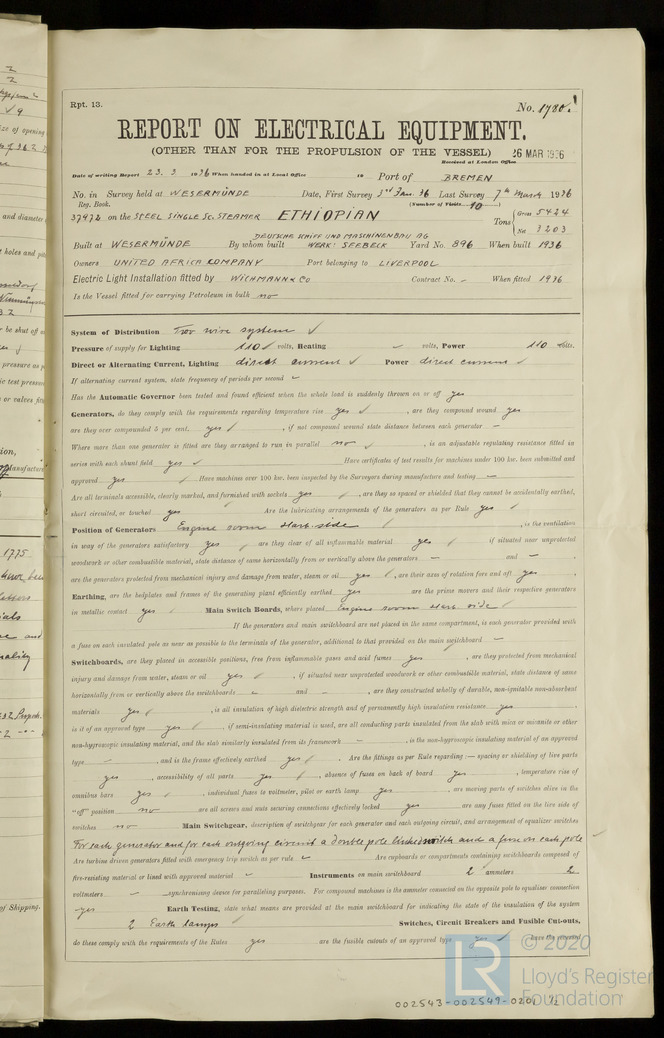 Rpt. 13.
No. 1780.
REPORT ON ELECTRICAL EQUIPMENT.
(OTHER THAN FOR THE PROPULSION OF THE VESSEL) 26 MAR 1936
Received at London Office
Date of writing Report 23. 3 1936 When handed in at Local Office 19 Port of BREMEN
No. in Survey held at WESERMÜNDE Date, First Survey 3rd Jan. 36 Last Survey 7th March 1936
Reg. Book. (Number of Visits 10)
37972 on the STEEL SINGLE SC. STEAMER ETHIOPIAN Tons { Gross 5424
Net 3203
DEUTSCHE SCHIFF UND MASCHINENBAU AG
Built at WESERMÜNDE By whom built WERK: SEEBECK Yard No. 896 When built 1936
Owners UNITED AFRICA COMPANY Port belonging to LIVERPOOL
Electric Light Installation fitted by WICHMANN & CO Contract No. - When fitted 1936
Is the Vessel fitted for carrying Petroleum in bulk no
System of Distribution Two wire system ✓
Pressure of supply for Lighting 110 ✓ volts, Heating ✓ volts, Power 110 volts.
Direct or Alternating Current, Lighting direct current ✓ Power direct current ✓
If alternating current system, state frequency of periods per second -
Has the Automatic Governor been tested and found efficient when the whole load is suddenly thrown on or off yes
Generators, do they comply with the requirements regarding temperature rise yes ✓, are they compound wound yes
are they over compounded 5 per cent. yes ✓, if not compound wound state distance between each generator -
Where more than one generator is fitted are they arranged to run in parallel no ✓, is an adjustable regulating resistance fitted in
series with each shunt field yes ✓ Have certificates of test results for machines under 100 kw. been submitted and
approved yes. Have machines over 100 kw. been inspected by the Surveyors during manufacture and testing -
Are all terminals accessible, clearly marked, and furnished with sockets yes, are they so spaced or shielded that they cannot be accidentally earthed,
short circuited, or touched yes Are the lubricating arrangements of the generators as per Rule yes
Position of Generators Engine room starb. side, is the ventilation
in way of the generators satisfactory yes are they clear of all inflammable material yes if situated near unprotected
woodwork or other combustible material, state distance of same horizontally from or vertically above the generators - and -
are the generators protected from mechanical injury and damage from water, steam or oil yes, are their axes of rotation fore and aft yes
Earthing, are the bedplates and frames of the generating plant efficiently earthed yes are the prime movers and their respective generators
in metallic contact yes Main Switch Boards, where placed Engine room starb side
If the generators and main switchboard are not placed in the same compartment, is each generator provided with
a fuse on each insulated pole as near as possible to the terminals of the generator, additional to that provided on the main switchboard -
Switchboards, are they placed in accessible positions, free from inflammable gases and acid fumes yes, are they protected from mechanical
injury and damage from water, steam or oil yes, if situated near unprotected woodwork or other combustible material, state distance of same
horizontally from or vertically above the switchboards - and -, are they constructed wholly of durable, non-ignitable non-absorbent
materials yes, is all insulation of high dielectric strength and of permanently high insulation resistance yes
is it of an approved type yes, if semi-insulating material is used, are all conducting parts insulated from the slab with mica or micanite or other
non-hygroscopic insulating material, and the slab similarly insulated from its framework -, is the non-hygroscopic insulating material of an approved
type -, and is the frame effectively earthed yes. Are the fittings as per Rule regarding:— spacing or shielding of live parts
yes, accessibility of all parts yes, absence of fuses on back of board yes, temperature rise of
omnibus bars yes, individual fuses to voltmeter, pilot or earth lamp yes, are moving parts of switches alive in the
"off" position no are all screws and nuts securing connections effectively locked yes are any fuses fitted on the live side of
switches no Main Switchgear, description of switchgear for each generator and each outgoing circuit, and arrangement of equalizer switches
For each generator and for each outgoing circuit a double pole linked switch and a fuse on each pole
Are turbine driven generators fitted with emergency trip switch as per rule - Are cupboards or compartments containing switchboards composed of
fire-resisting material or lined with approved material - Instruments on main switchboard 2 ammeters 2
voltmeters - synchronising device for paralleling purposes. For compound machines is the ammeter connected on the opposite pole to equaliser connection
yes Earth Testing, state what means are provided at the main switchboard for indicating the state of the insulation of the system
2 Earth lamps Switches, Circuit Breakers and Fusible Cut-outs,
do these comply with the requirements of the Rules yes are the fusible cutouts of an approved type yes have the reversed
© 2020
Lloyd's Register
Foundation
LR
002543-002549-0201 1/2